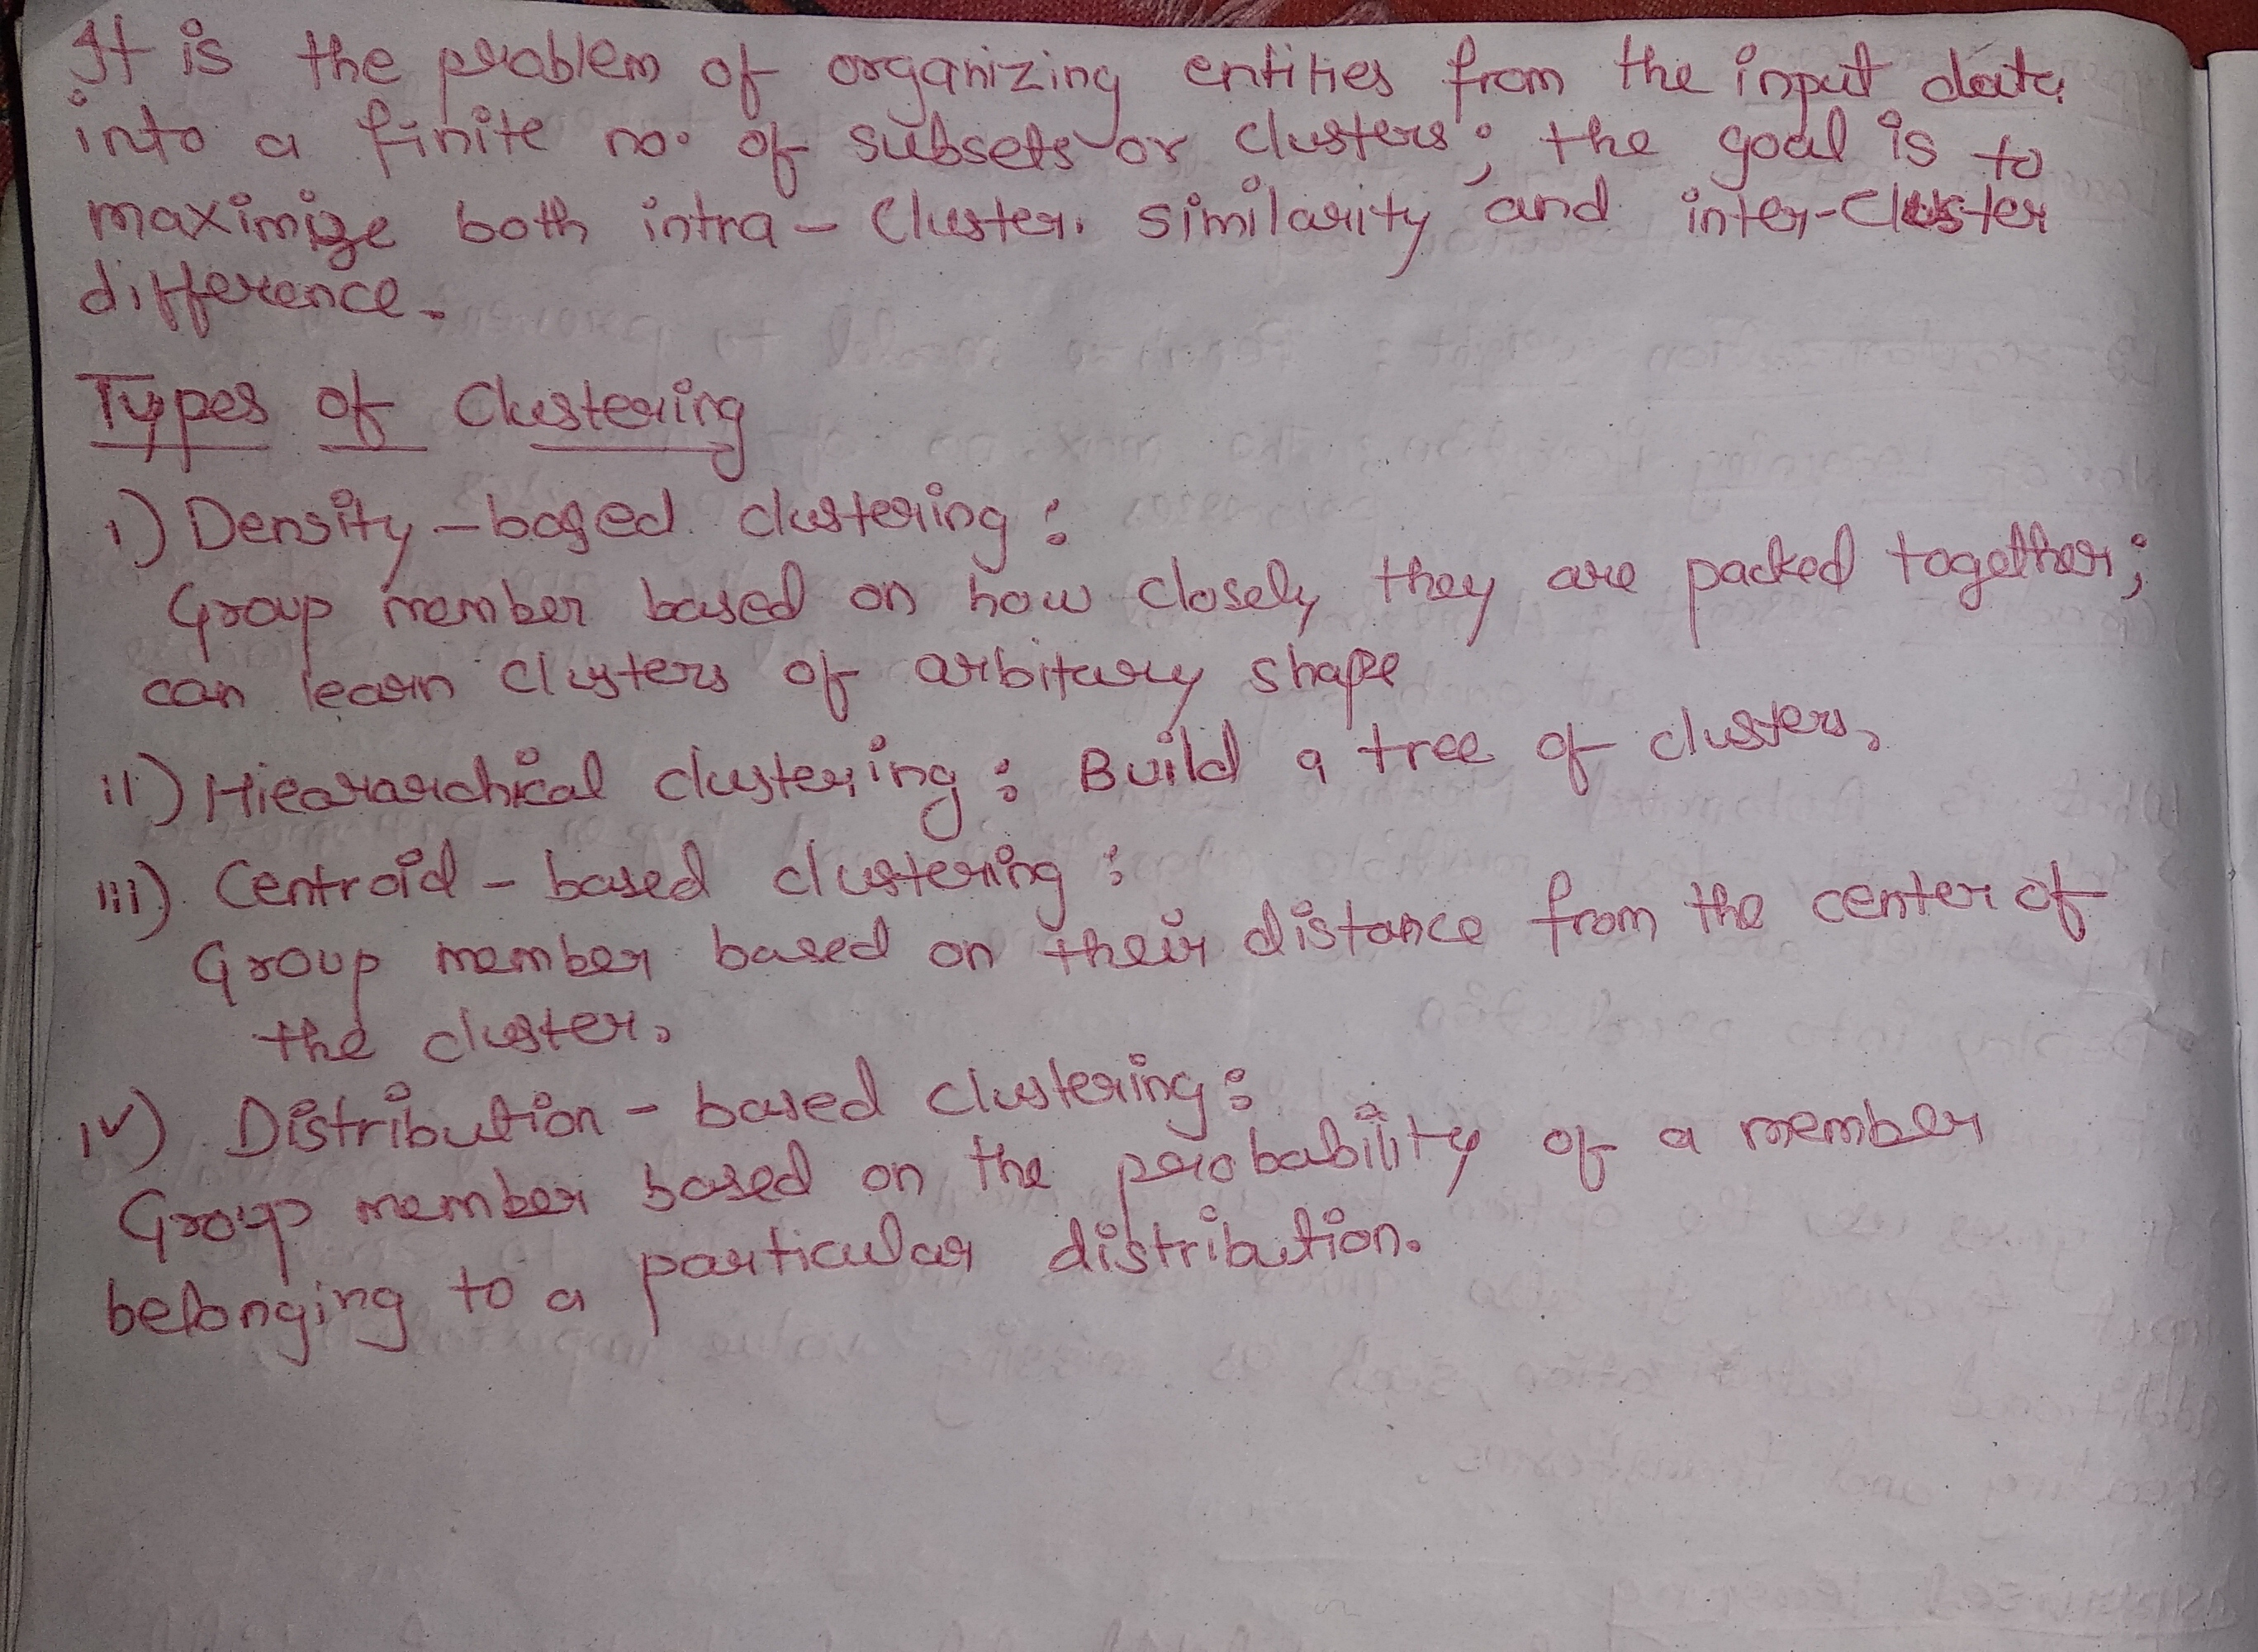 It is the problem of organizing entities from the input data
into a finite no. of subsets or clusters; the goal is to
maximize both intra-cluster similarity and inter-cluster
difference.
Types of Clustering
i) Density-based clustering:
Group member based on how closely they are packed together;
can learn clusters of arbitary shape
ii) Hieararchical clustering: Build a tree of clusters,
iii) Centroid-based clustering:
Group member based on their distance from the center of
the cluster.
iv) Distribution-based clustering:
Group member based on the probability of a member
belonging to a particular distribution.